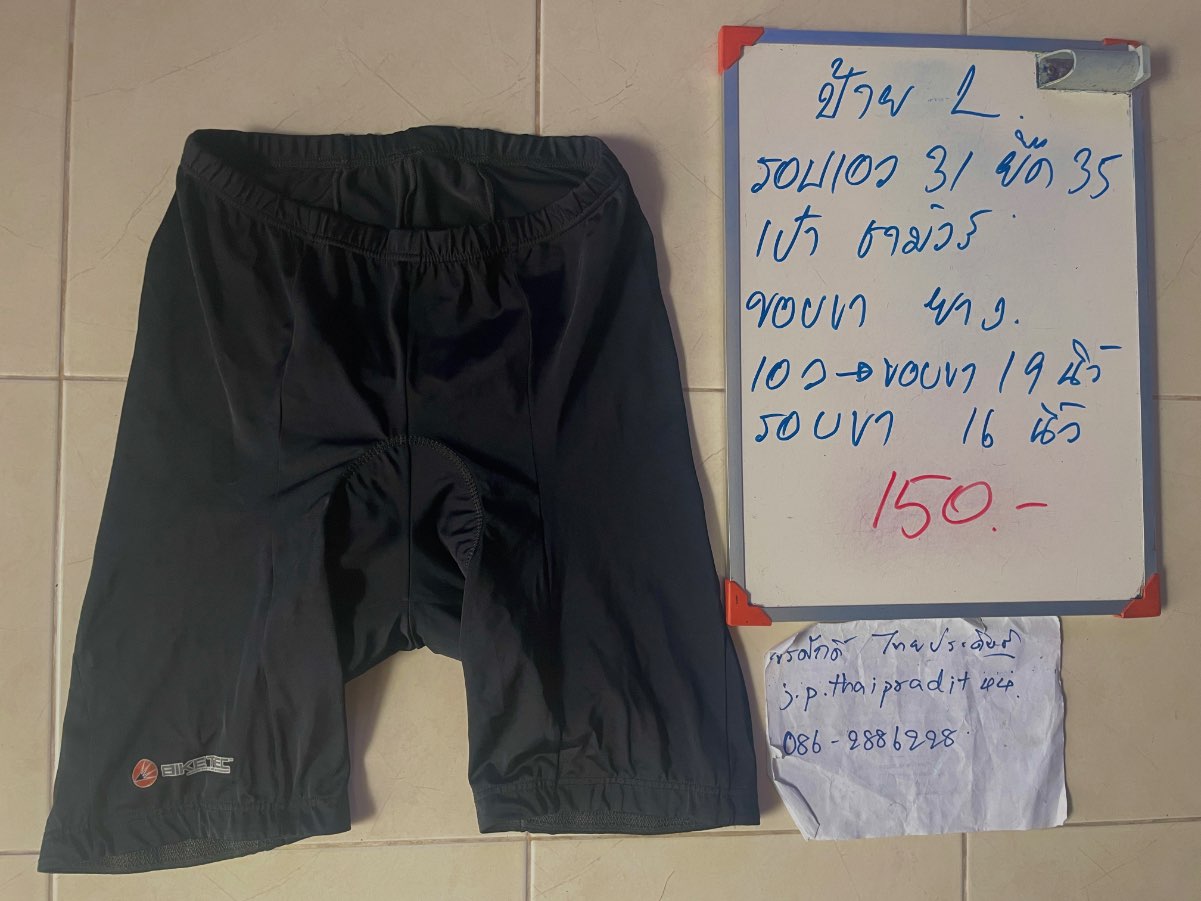 ป้าย L.
รอบเอว 31 ยืด 35
เป้า ชามัวร์
ขอบขา ยาง.
เอว→ขอบขา 19 นิ้ว
รอบขา 16 นิ้ว
150.-
ไทยประดิษฐ์
j.p.thaipradit 44.
086-2886228
BIKETEC